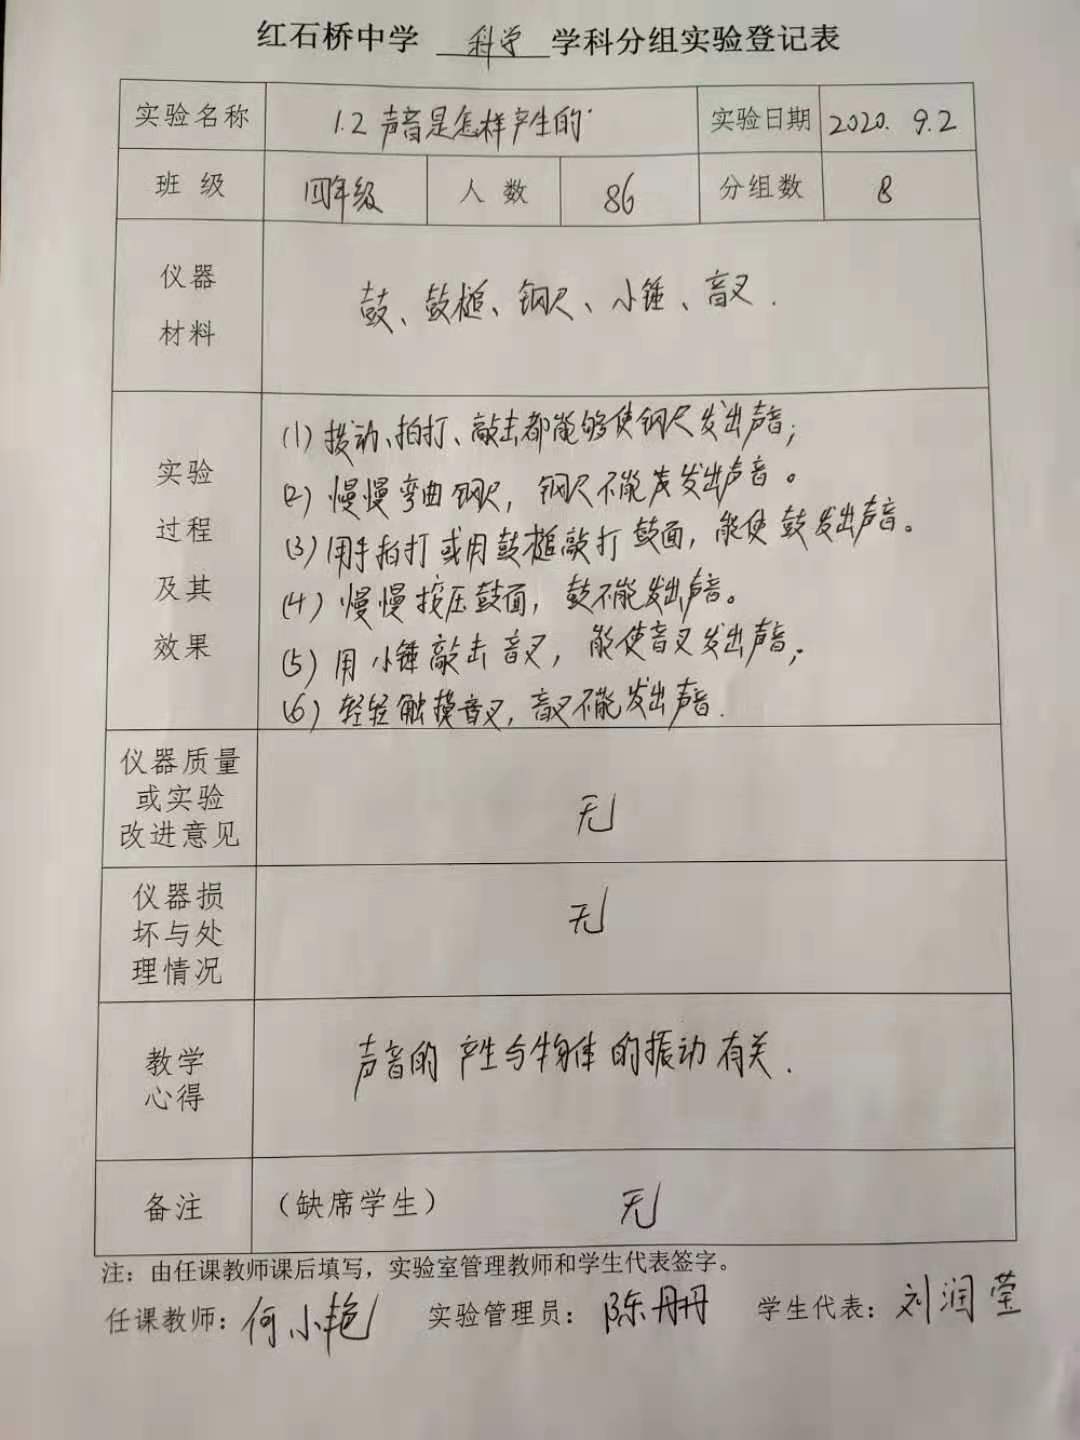 红石桥中学 科学 学科分组实验登记表
实验名称 1.2 声音是怎样产生的 实验日期 2020. 9.2
班 级 四年级 人 数 86 分组数 8
仪器
材料
鼓、鼓槌、钢尺、小锤、音叉.
实验
过程
及其
效果
(1) 拨动、拍打、敲击都能够使钢尺发出声音;
(2) 慢慢弯曲钢尺, 钢尺不能发出声音。
(3) 用手拍打或用鼓槌敲打鼓面, 能使鼓发出声音。
(4) 慢慢按压鼓面, 鼓不能发出声音。
(5) 用小锤敲击音叉, 能使音叉发出声音;
(6) 轻轻触摸音叉, 音叉不能发出声音.
仪器质量
或实验
改进意见
无
仪器损
坏与处
理情况
无
教学
心得
声音的产生与物体的振动有关.
备注 (缺席学生) 无
注：由任课教师课后填写，实验室管理教师和学生代表签字。
任课教师: 何小艳 实验管理员: 陈册册 学生代表: 刘润莹